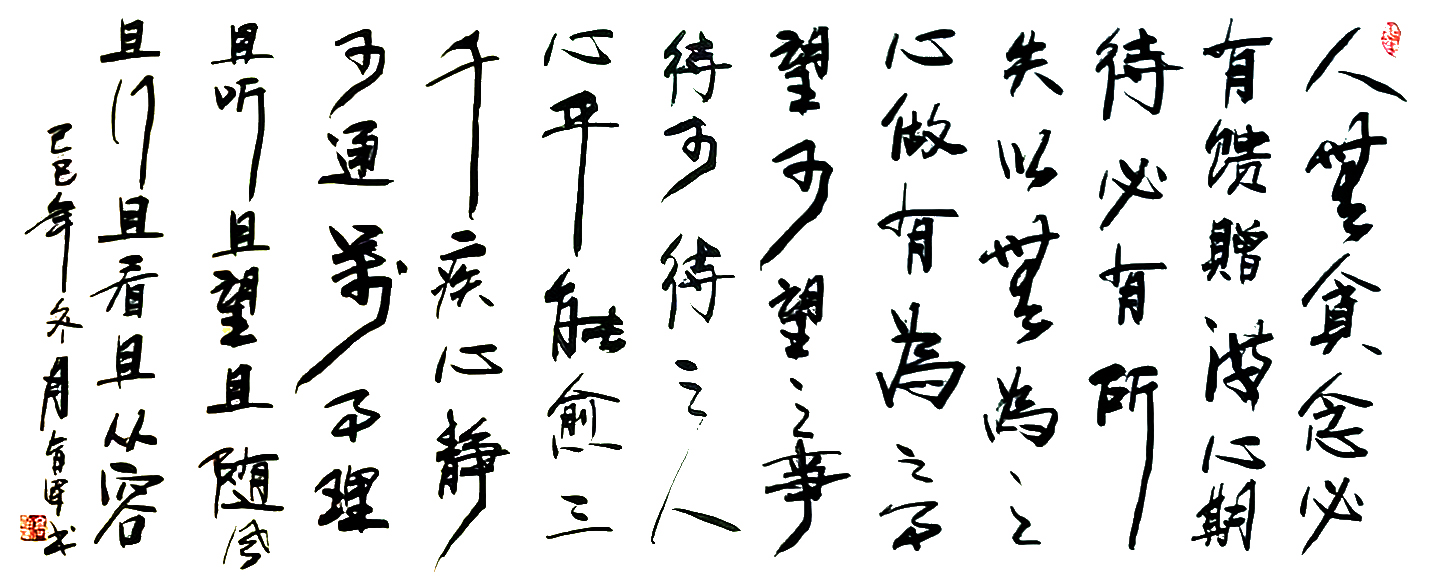 人無貪念必
有馈贈满心期
待必有所
失以無為之
心做有為之事
望可望之事
待可待之人
心平能愈三
千疾心静
可通萬事理
且听且望且随风
且行且看且从容
己巳年冬月书